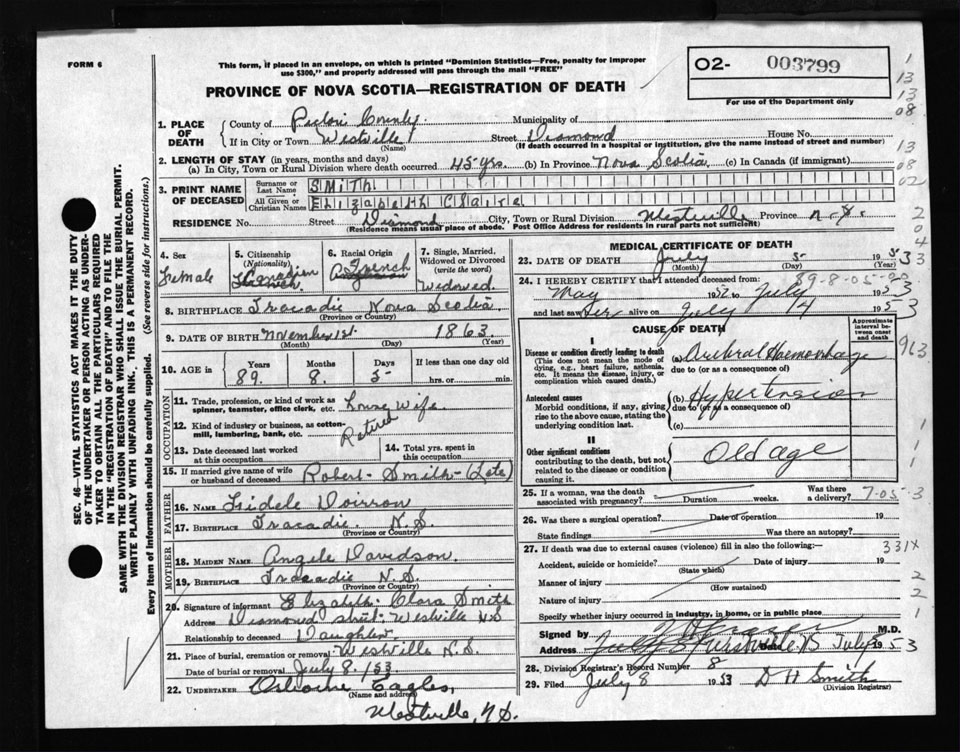 FORM 6
This form, if placed in an envelope, on which is printed "Dominion Statistics—Free, penalty for improper
use $300," and properly addressed will pass through the mail "FREE"
PROVINCE OF NOVA SCOTIA—REGISTRATION OF DEATH
O2- 003799
For use of the Department only
SEC. 46—VITAL STATISTICS ACT MAKES IT THE DUTY
OF THE UNDERTAKER OR PERSON ACTING AS UNDER-
TAKER TO OBTAIN ALL THE PARTICULARS REQUIRED
IN THE "REGISTRATION OF DEATH" AND TO FILE THE
SAME WITH THE DIVISION REGISTRAR WHO SHALL ISSUE THE BURIAL PERMIT.
WRITE PLAINLY WITH UNFADING INK. THIS IS A PERMANENT RECORD.
Every item of information should be carefully supplied. (See reverse side for instructions.)
1. PLACE OF DEATH
County of Pictou County Municipality of
If in City or Town Westville Street Diamond House No.
(Name) (If death occurred in a hospital or institution, give the name instead of street and number)
2. LENGTH OF STAY (in years, months and days)
(a) In City, Town or Rural Division where death occurred 45 yrs. (b) In Province Nova Scotia (c) In Canada (if immigrant)
3. PRINT NAME OF DECEASED
Surname or Last Name SMITH
All Given or Christian Names Elizabeth Claire
RESIDENCE No. Street Diamond City, Town or Rural Division Westville Province N.S.
(Residence means usual place of abode. Post Office Address for residents in rural parts not sufficient)
4. Sex Female
5. Citizenship (Nationality) Canadian
6. Racial Origin French
7. Single, Married, Widowed or Divorced (write the word) Widowed
8. BIRTHPLACE Tracadie Nova Scotia
(Province or Country)
9. DATE OF BIRTH November 1st. 1863
(Month) (Day) (Year)
10. AGE in Years 89. Months 8. Days 5 If less than one day old hrs. or min.
OCCUPATION
11. Trade, profession, or kind of work as spinner, teamster, office clerk, etc. House Wife
12. Kind of industry or business, as cotton-mill, lumbering, bank, etc. Retired
13. Date deceased last worked at this occupation
14. Total yrs. spent in this occupation
15. If married give name of wife or husband of deceased Robert Smith (Late)
FATHER
16. Name Fidele Doiron
17. BIRTHPLACE Tracadie N.S.
(Province or Country)
MOTHER
18. MAIDEN NAME Angele Davidson
19. BIRTHPLACE Tracadie N.S.
(Province or Country)
20. Signature of informant Elizabeth Clara Smith
Address Diamond street Westville N.S
Relationship to deceased Daughter
21. Place of burial, cremation or removal Westville N.S.
Date of burial or removal July 8/53
22. UNDERTAKER Osborne Eagles,
(Name and address)
Westville, N.S.
MEDICAL CERTIFICATE OF DEATH
23. DATE OF DEATH July 5 1953
(Month) (Day) (Year)
24. I HEREBY CERTIFY that I attended deceased from:
May 1952 to July 1953
and last saw her alive on July 4 1953
CAUSE OF DEATH
Approximate interval between onset and death
I
Disease or condition directly leading to death
(This does not mean the mode of dying, e.g., heart failure, asthenia, etc. It means the disease, injury, or complication which caused death.)
(a) Cerebral Haemorrhage
due to (or as a consequence of)
Antecedent causes
Morbid conditions, if any, giving rise to the above cause, stating the underlying condition last.
(b) Hypertension
due to (or as a consequence of)
(c)
II
Other significant conditions
contributing to the death, but not related to the disease or condition causing it.
Old age
25. If a woman, was the death associated with pregnancy? Duration weeks. Was there a delivery?
26. Was there a surgical operation? Date of operation 19
State findings Was there an autopsy?
27. If death was due to external causes (violence) fill in also the following:— 331X
Accident, suicide or homicide? Date of injury 19
(State which)
Manner of injury
(How sustained)
Nature of injury
Specify whether injury occurred in industry, in home, or in public place
Signed by M.D.
Address Westville NS July 1953
28. Division Registrar's Record Number 8
29. Filed July 8 1953 D H Smith
(Division Registrar)